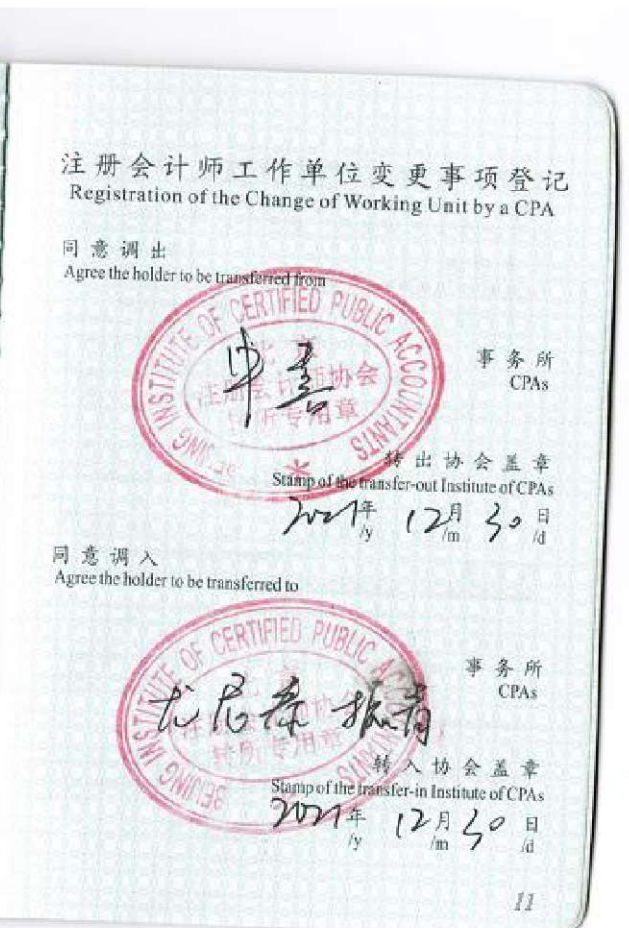 注册会计师工作单位变更事项登记
Registration of the Change of Working Unit by a CPA
同意调出
Agree the holder to be transferred from
BEIJING INSTITUTE OF CERTIFIED PUBLIC ACCOUNTANTS
北京
注册会计师协会
转所专用章
事务所
CPAs
转出协会盖章
Stamp of the transfer-out Institute of CPAs
2021年 12月 30日
/y /m /d
同意调入
Agree the holder to be transferred to
BEIJING INSTITUTE OF CERTIFIED PUBLIC ACCOUNTANTS
北京
注册会计师协会
转所专用章
尤尼泰振青
事务所
CPAs
转入协会盖章
Stamp of the transfer-in Institute of CPAs
2021年 12月 30日
/y /m /d
11